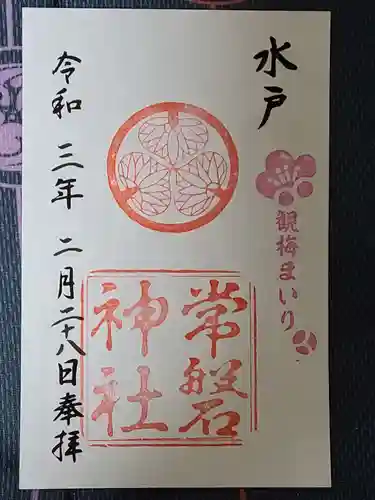 水戸
觀梅まいり
常磐
神社
令和三年二月二十八日奉拝